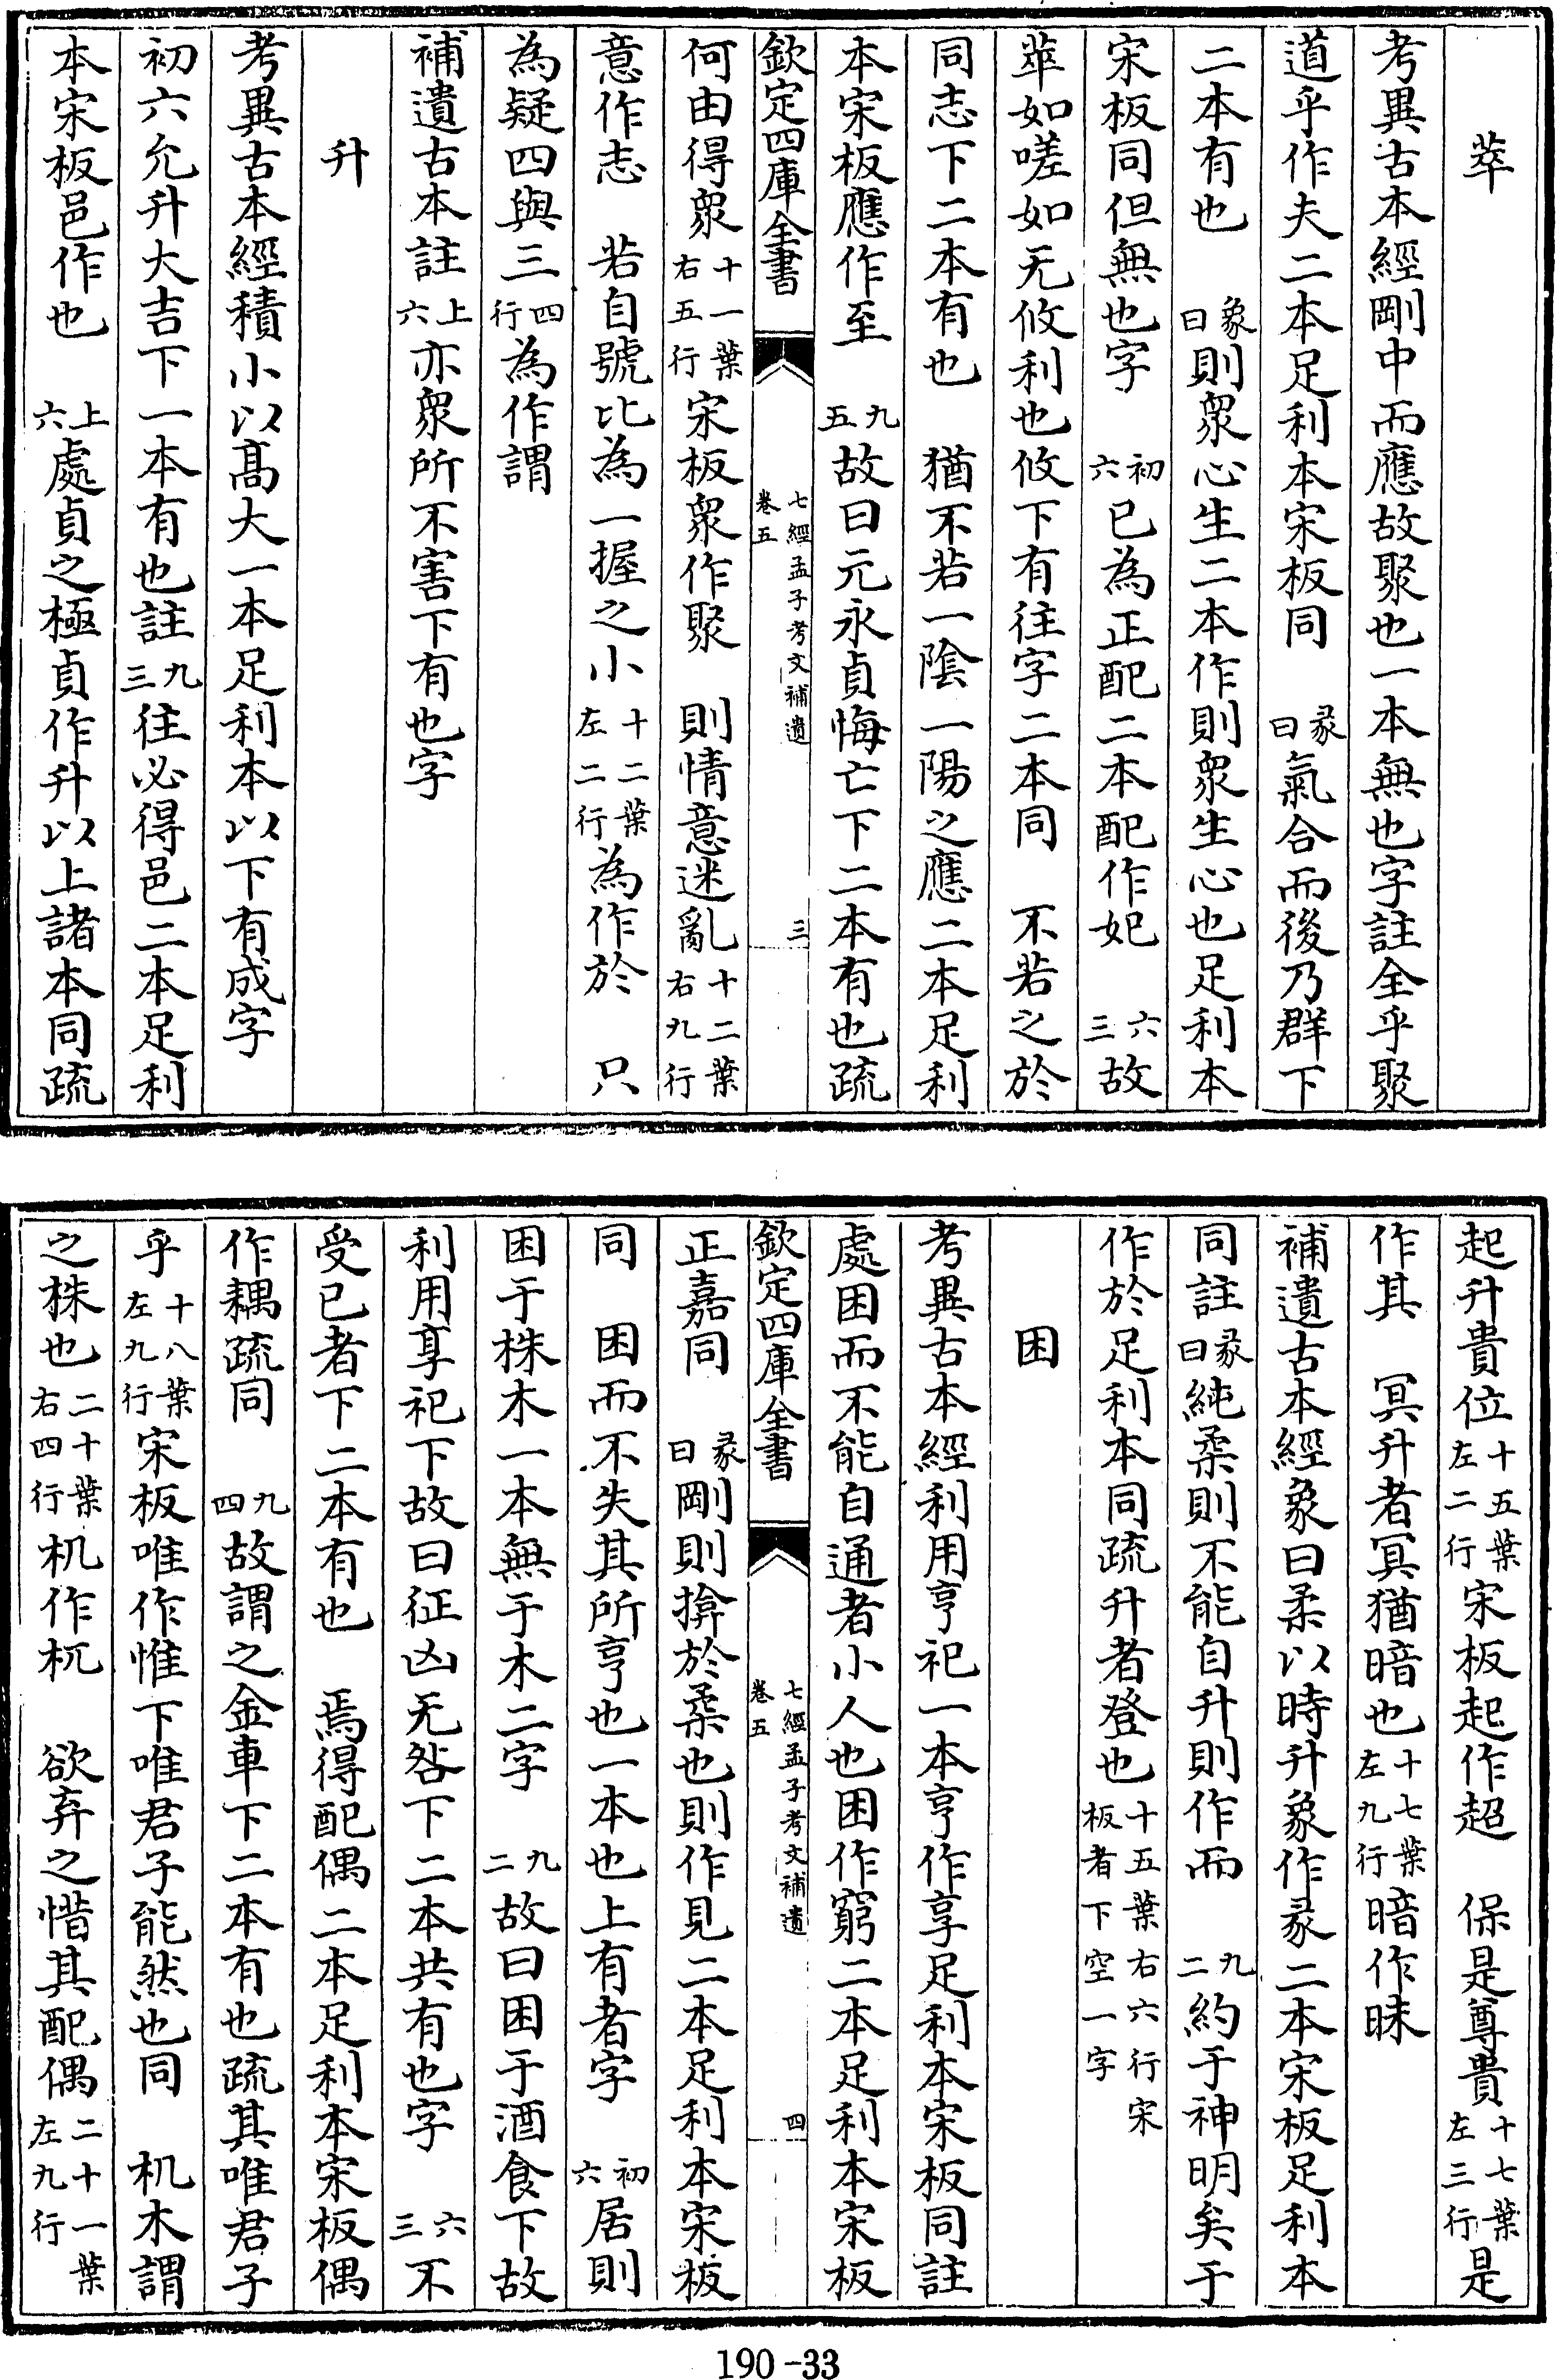 萃
考異古本經剛中而應故聚也一本無也字註全乎聚
道乎作夫二本足利本宋板同　彖曰氣合而後乃群下
二本有也　象曰則衆心生二本作則衆生心也足利本
宋板同但無也字　初六已為正配二本配作妃　六三故
萃如嗟如无攸利也攸下有往字二本同　不若之於
同志下二本有也　猶不若一陰一陽之應二本足利
本宋板應作至　九五故曰元永貞悔亡下二本有也疏
欽定四庫全書　卷五　七經孟子考文補遺　三
何由得衆十一葉右五行宋板衆作聚　則情意迷亂十二葉右九行
意作志　若自號比為一握之小十二葉左二行為作於　只
為疑四與三四行為作謂
補遺古本註上六亦衆所不害下有也字
升
考異古本經積小以髙大一本足利本以下有成字
初六允升大吉下一本有也註九三往必得邑二本足利
本宋板邑作也　上六處貞之極貞作升以上諸本同疏
起升貴位十五葉左二行宋板起作超　保是尊貴十七葉左三行是
作其　冥升者冥猶暗也十七葉左九行暗作昧
補遺古本經象曰柔以時升象作彖二本宋板足利本
同註彖曰純柔則不能自升則作而　九二約于神明矣于
作於足利本同疏升者登也十五葉右六行宋板者下空一字
困
考異古本經利用亨祀一本亨作享足利本宋板同註
處困而不能自通者小人也困作窮二本足利本宋板
欽定四庫全書　卷五　七經孟子考文補遺　四
正嘉同　彖曰剛則揜於柔也則作見二本足利本宋板
同　困而不失其所亨也一本也上有者字　初六居則
困于株木一本無于木二字　九二故曰困于酒食下故
利用享祀下故曰征凶无咎下二本共有也字　六三不
受已者下二本有也　焉得配偶二本足利本宋板偶
作耦疏同　九四故謂之金車下二本有也疏其唯君子
乎十八葉左九行宋板唯作惟下唯君子能然也同　机木謂
之株也二十葉右四行机作杌　欲弃之惜其配偶二十一葉左九行
190-33